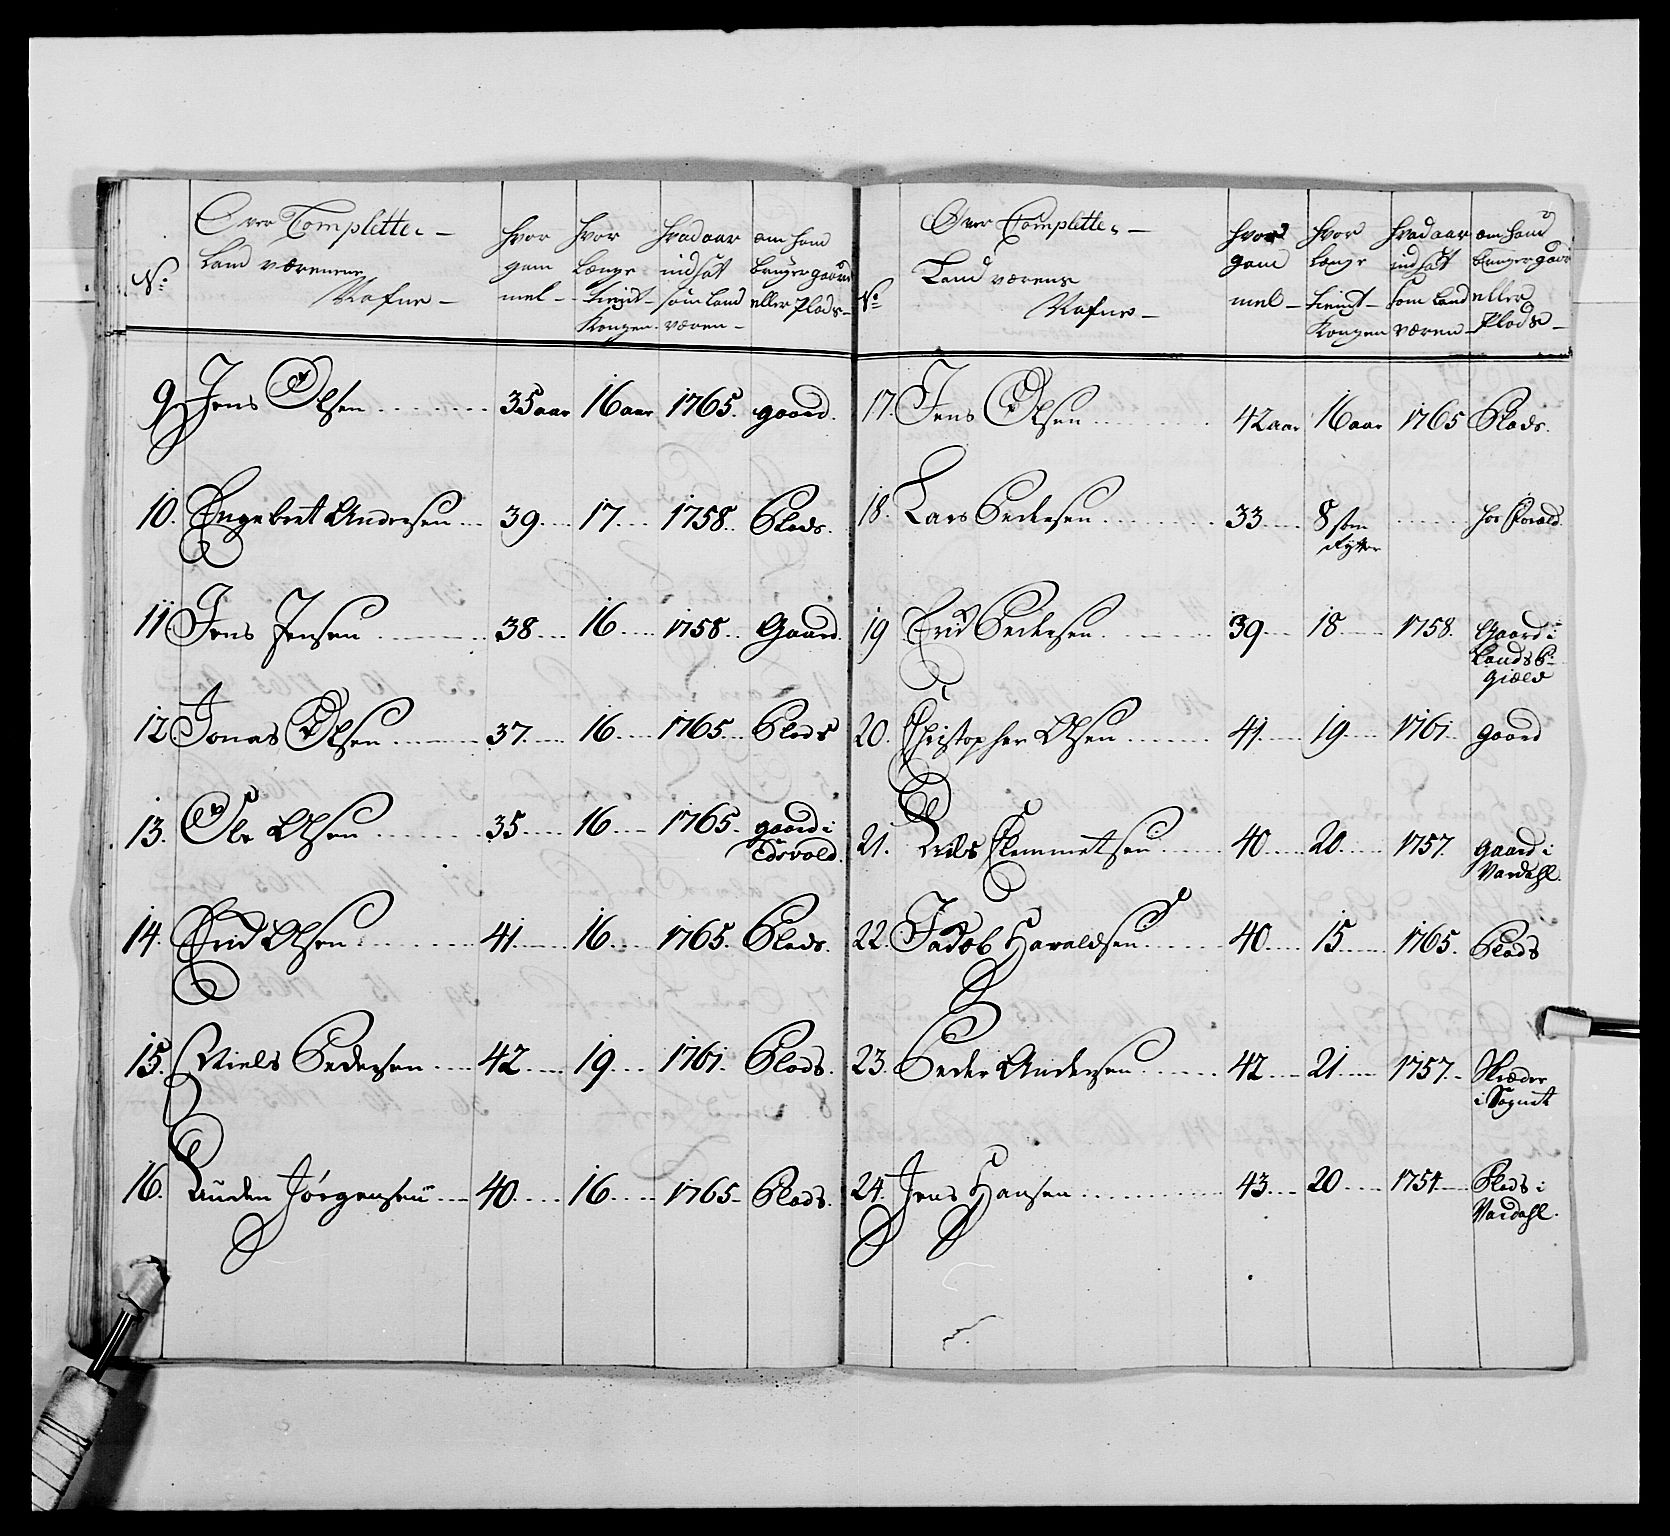 No. Over Complette Land værenens Nafne hvor gam mel hvor længe tient Kongen hvad aar indsat som land væren om hand bruger gaard eller Plads
9 Jens Olsen 35 aar 16 aar 1765. gaard.
10. Engebret Andersen 39. 17. 1758. Plads.
11 Jens Jensen 38 16 1758. Gaard.
12 Jonas Olsen 37. 16 1765 Plads
13. Ole Olsen 35 16 1765. gaard i
Edsvold.
14. Erich Olsen 41. 16. 1765. Plads.
15. Niels Pedersen 42 19. 1761. Plads.
16. Auden Jørgensen 40. 16 1765 Plads.
No. Over Complette Land værens Nafne hvor gam mel hvor længe tient Kongen hvad aar indsat som land væren om hand bruger gaard eller Plads
17. Jens Olsen 42 aar 16 aar 1765 Plads.
18. Lars Pedersen 33 8 som
Rytter
19 Erich Pedersen 39 18 1758. Gaard i
Lands P:
gield
20. Christopher Olsen 41 19 1761 gaard
21. Niels Clemmetsen 40 20 1757. gaard i
Vardahl.
22. Jacob Haraldsen 40 15 1765. Plads
23. Peder Andersen 42 21 1757. Skræder
i Sognet
24. Jens Hansen 43 20 1754 Plads i
Vardahl.